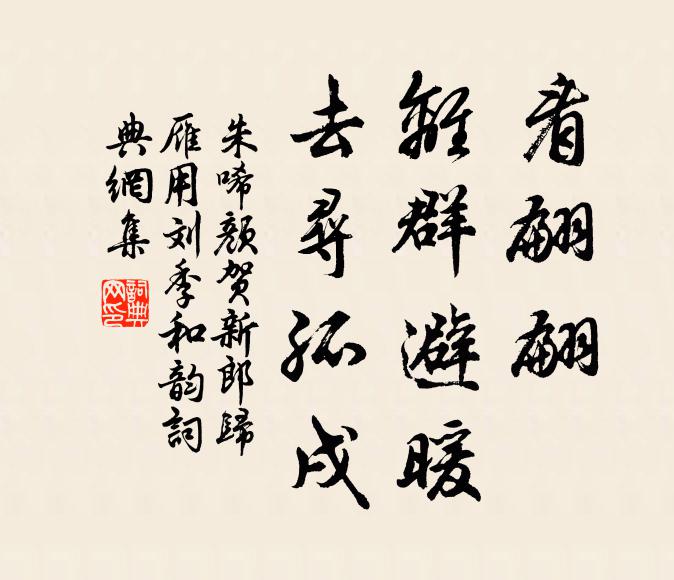 看翩翩
離群避暖
去尋孤戍
朱唏颜贺新郎歸
雁用刘季和韵詞
典網集
詞典网印